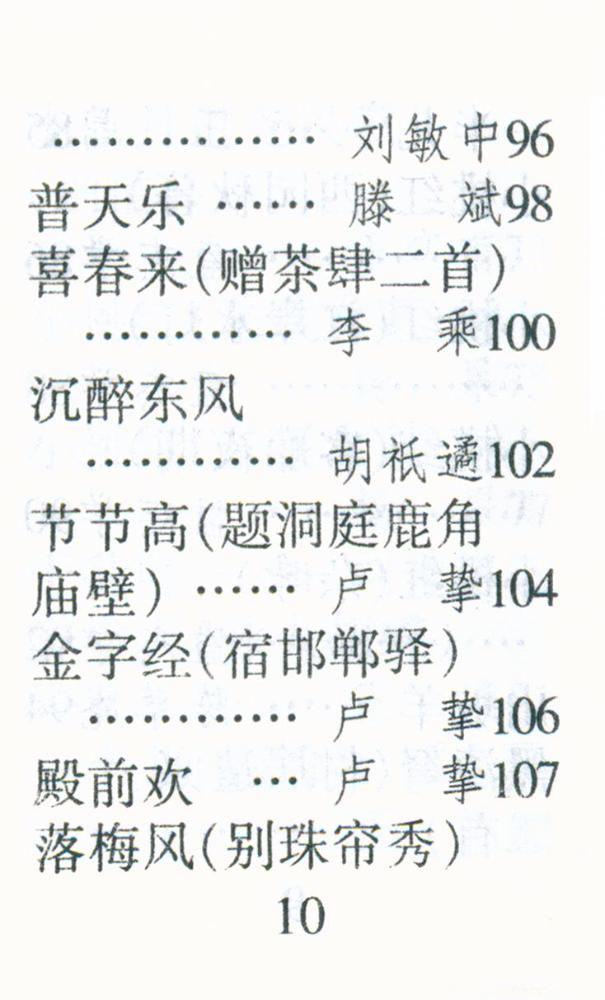 …………… 刘敏中96
普天乐 …… 滕 斌98
喜春来(赠茶肆二首)
………… 李 乘100
沉醉东风
………… 胡祗遹102
节节高(题洞庭鹿角
庙壁) …… 卢 挚104
金字经(宿邯郸驿)
………… 卢 挚106
殿前欢 … 卢 挚107
落梅风(别珠帘秀)
10